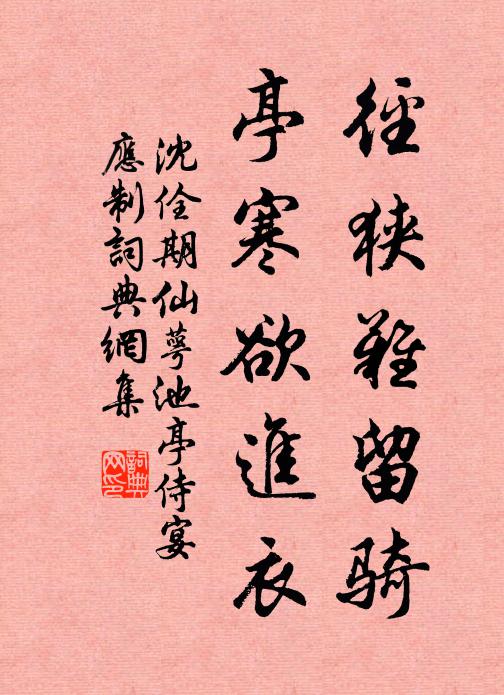 徑狹難留騎
亭寒欲進衣
沈佺期仙萼池亭侍宴
應制詞典網集
詞典網印